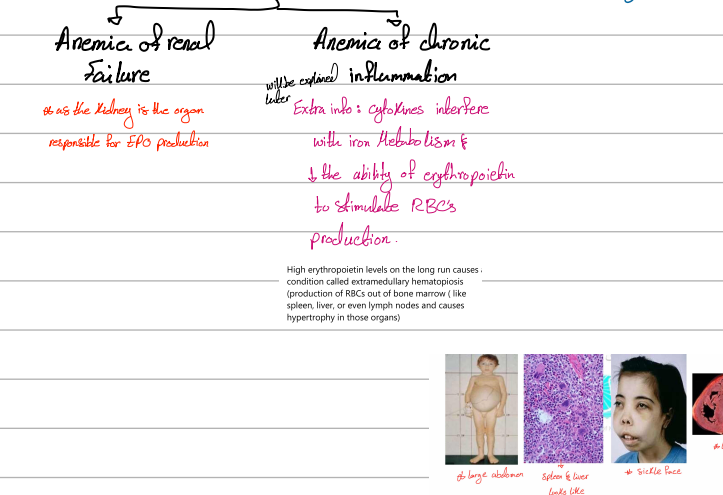 Anemia of renal
Failure
* as the kidney is the organ
responsible for EPO production
Anemia of chronic
inflammation
will be explained
later
Extra info: cytokines interfere
with iron Metabolism &
↓ the ability of erythropoietin
to stimulate RBC's
production.
High erythropoietin levels on the long run causes
condition called extramedullary hematopiosis
(production of RBCs out of bone marrow ( like
spleen, liver, or even lymph nodes and causes
hypertrophy in those organs)
* large abdomen
spleen & liver
looks like
* sickle face